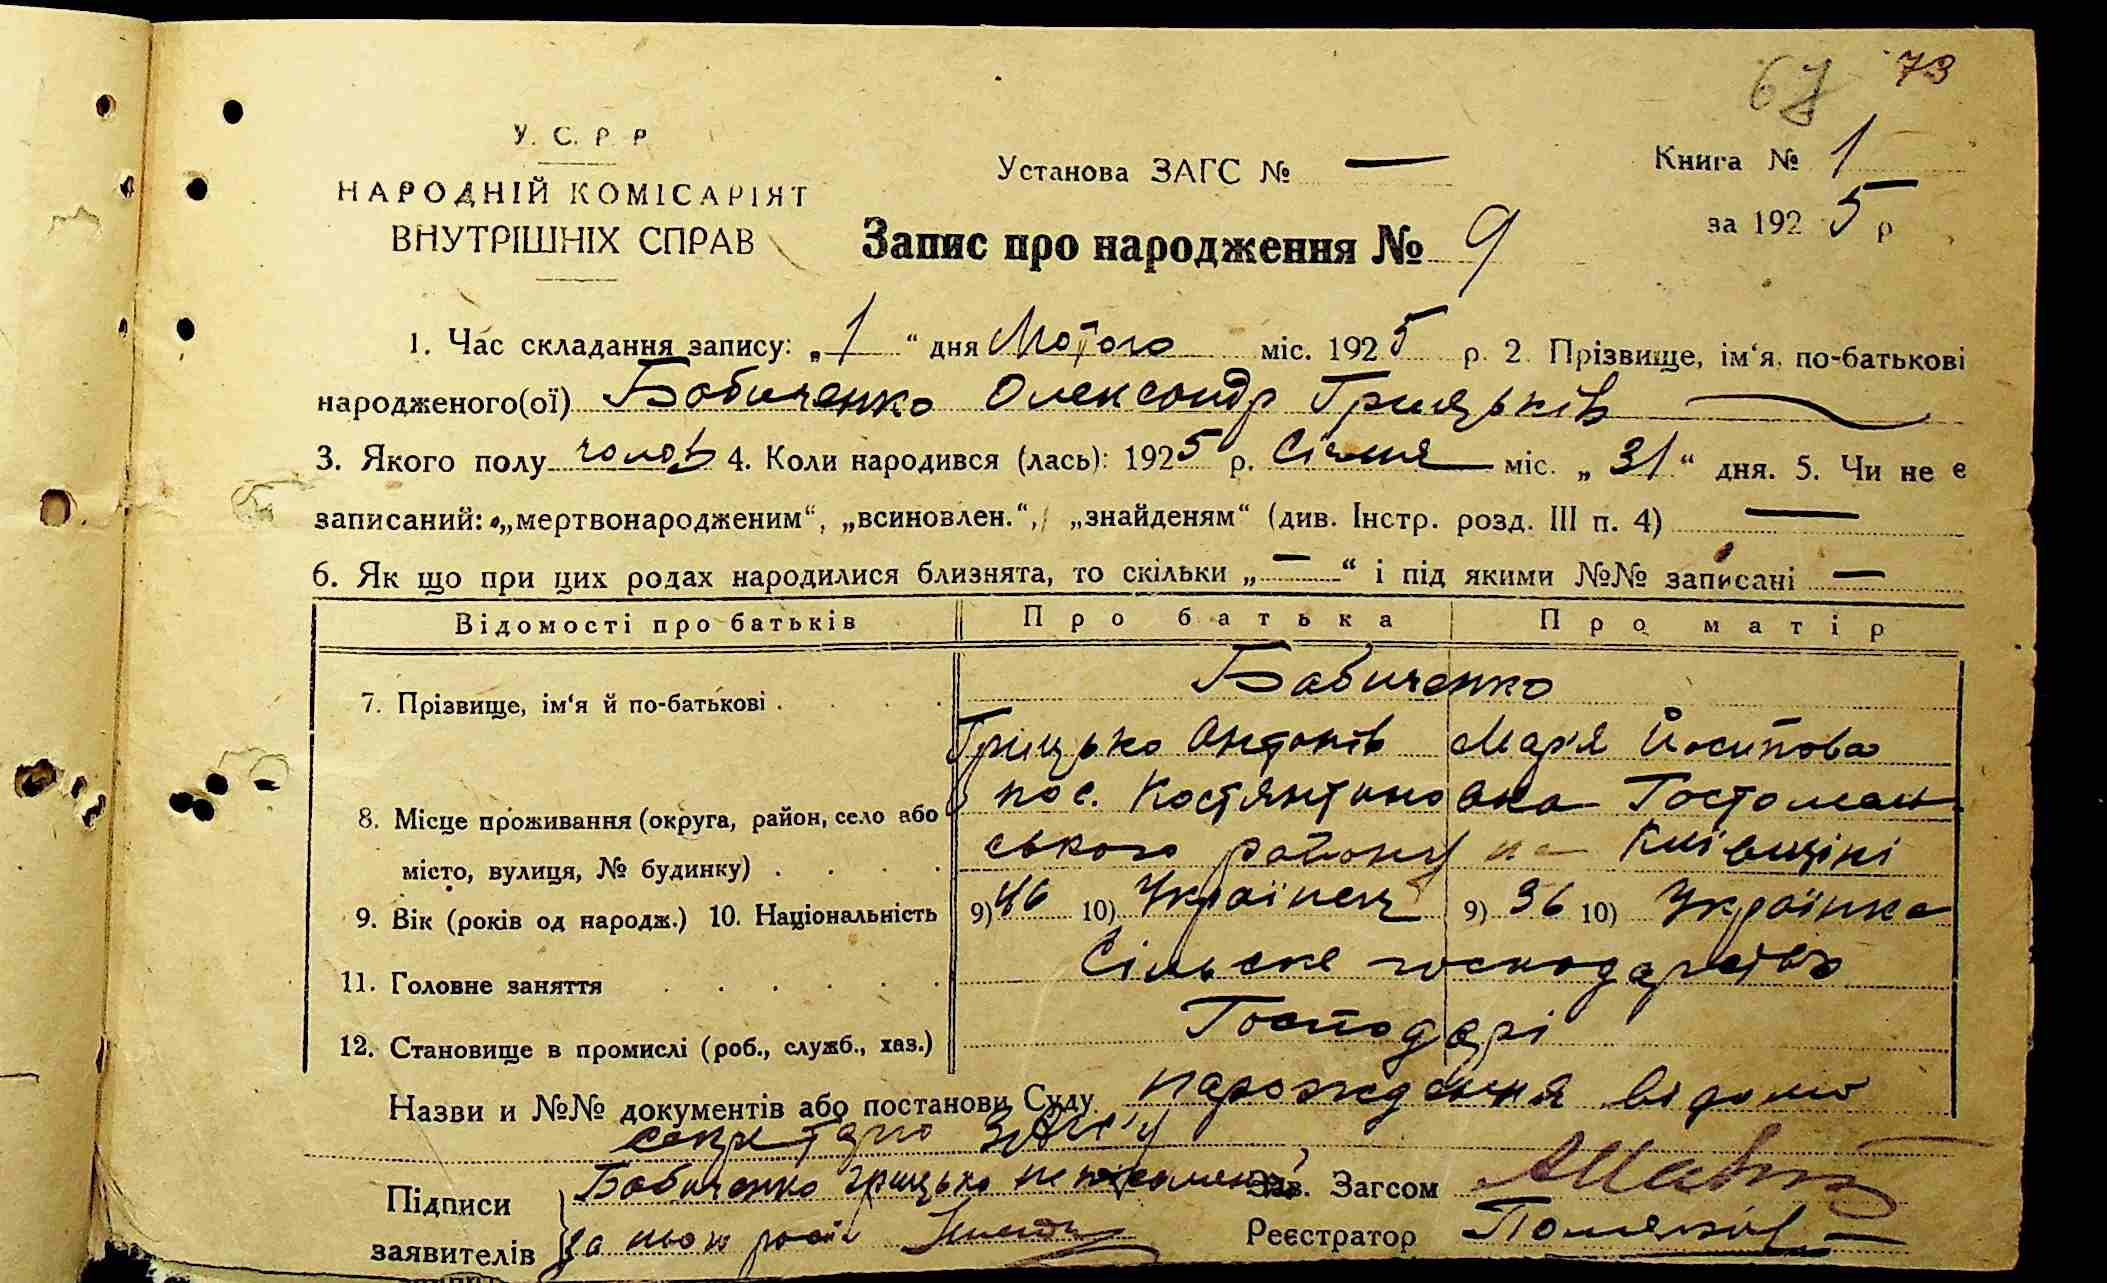 67 73
У. С. Р. Р
НАРОДНІЙ КОМІСАРІЯТ
ВНУТРІШНІХ СПРАВ
Установа ЗАГС № —
Книга № 1
за 1925 р
Запис про народження № 9
1. Час складання запису: „1“ дня Лютого міс. 1925 р. 2. Прізвище, ім‘я, по-батькові
народженого(ої) Бабиченко Олександр Грицьків
3. Якого полу чолов 4. Коли народився (лась): 1925 р. Січня міс. „31“ дня. 5. Чи не є
записаний: „мертвонародженим“, „всиновлен.“, „знайденям“ (див. Інстр. розд. III п. 4) —
6. Як що при цих родах народилися близнята, то скільки „—“ і під якими №№ записані —
Відомості про батьків Про батька Про матір
Бабиченко
7. Прізвище, ім‘я й по-батькові .
Грицько Антонів Мар'я Йосипова
пос. Костянтиновка Гостомель-
8. Місце проживання (округа, район, село або
ського району на Київщіні
місто, вулиця, № будинку) .
9. Вік (років од народж.) 10. Національність 9) 46 10) Українець 9) 36 10) Українка
11. Головне заняття Сільське господарство
12. Становище в промислі (роб., служб., хаз.) Господарі
Назви и №№ документів або постанови Суду народження відомо
секретарю ЗАГС'у
Підписи Бабиченко Грицько
заявителів За нього
Зав. Загсом
Реєстратор